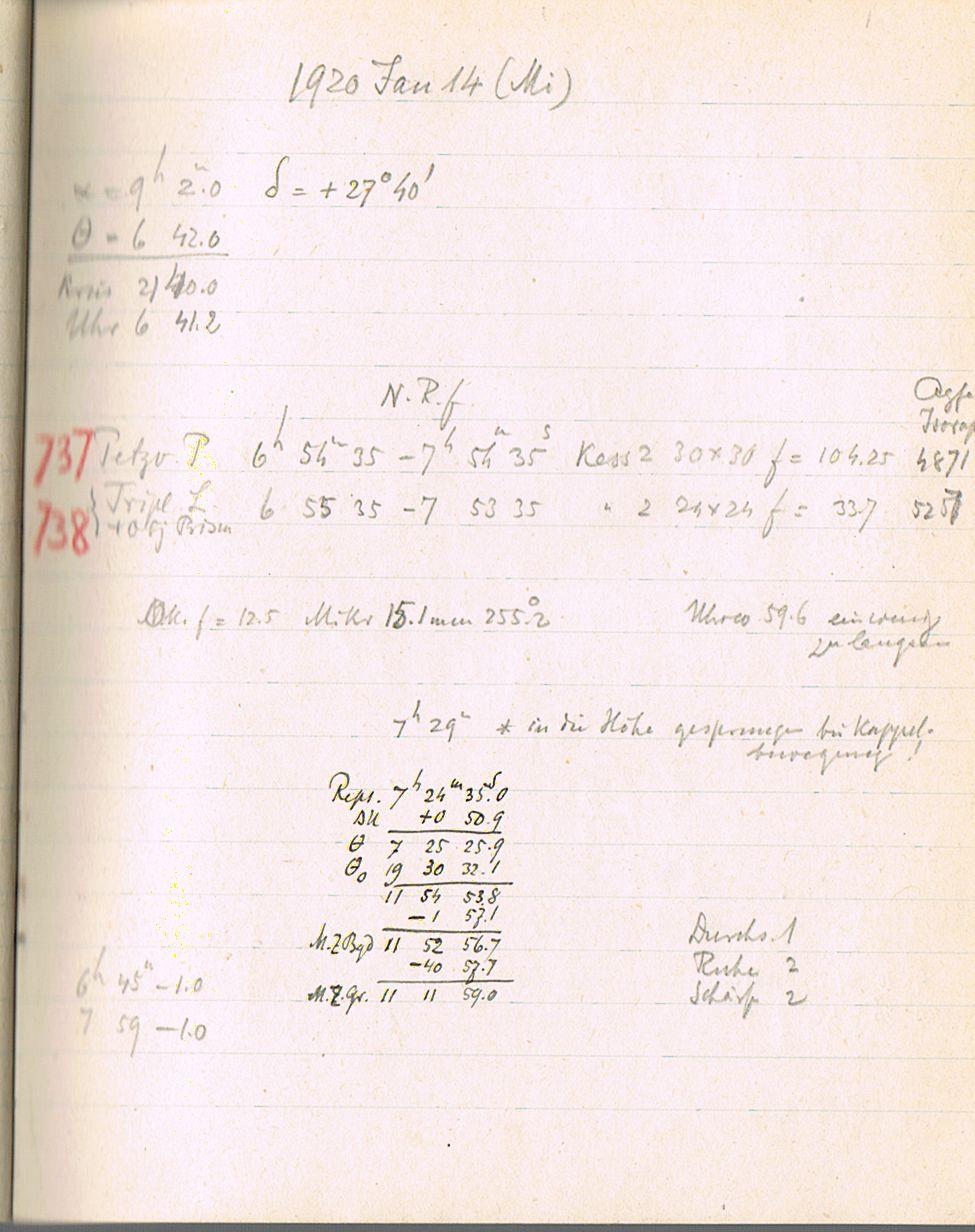 1920 Jan 14 (Mi)
α = 9h 2m.0 δ = +27° 40'
θ = 6 42.0
Kreis 21 40.0
Uhr 6 41.2
N.R.f. Agfa
Isorap
737 Petzv. P. 6h 54m 35 – 7h 54m 35s Kass 2 30×30 f = 104.25 4871
738 { Tripl L. 6 55 35 – 7 53 35 " 2 24×24 f = 33.7 5257
+ Obj Prism
Ok. f = 12.5 Mikr 15.1 mm 255°.2 Uhr 59.6 ein wenig
zu langsam
7h 29m * in die Höhe gesprungen bei Kuppel-
bewegung!
Reps. 7h 24m 35s.0
ΔU +0 50.9
θ 7 25 25.9
θ0 19 30 32.1
11 54 53.8
– 1 57.1
M.Z.Bgd 11 52 56.7
–40 57.7
M.Z.Gr. 11 11 59.0
Durchs. 1
Ruhe 2
Schärfe 2
6h 45m –1.0
7 59 –1.0